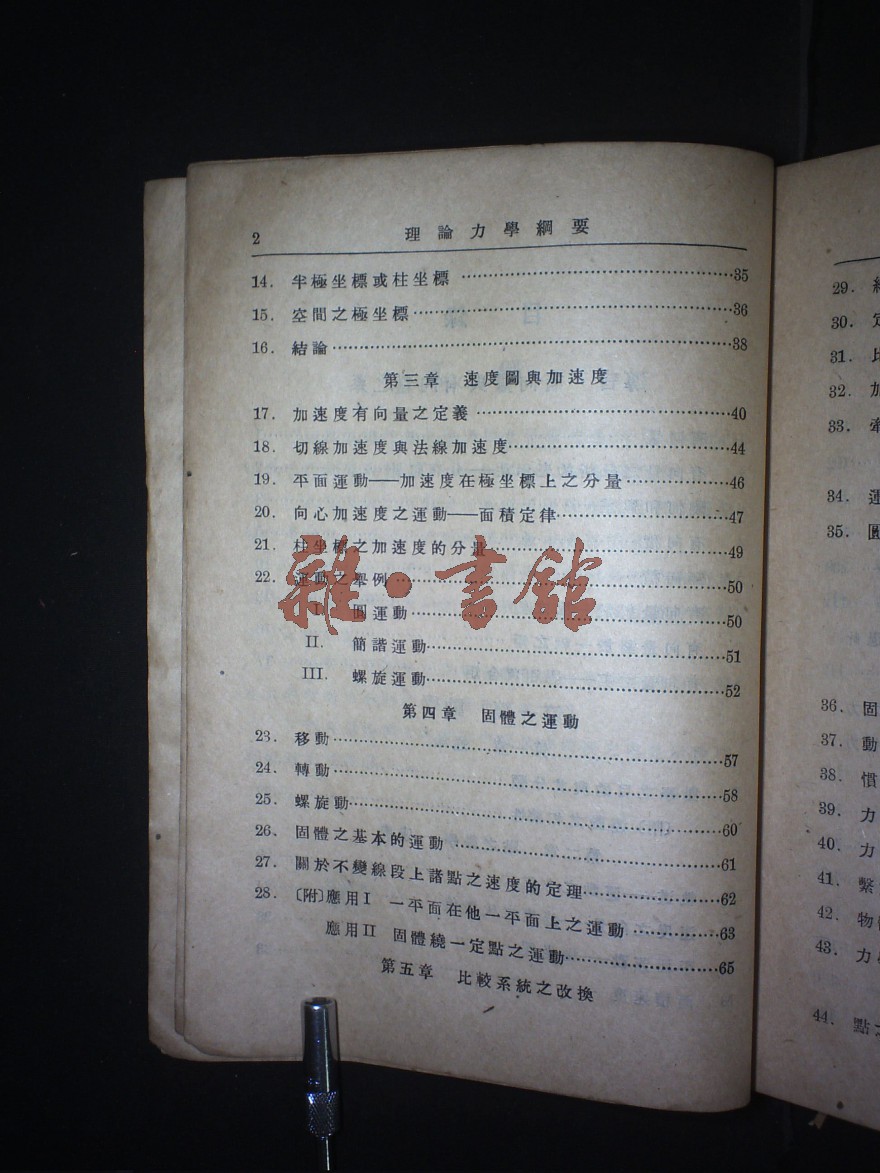 2 理論力學綱要
14. 半極坐標或柱坐標 ……35
15. 空間之極坐標……36
16. 結論……38
第三章 速度圖與加速度
17. 加速度有向量之定義……40
18. 切線加速度與法線加速度……44
19. 平面運動——加速度在極坐標上之分量……46
20. 向心加速度之運動——面積定律……47
21. 柱坐標之加速度的分量……49
22. 運動之舉例……50
I. 圓運動……50
II. 簡諧運動……51
III. 螺旋運動……52
第四章 固體之運動
23. 移動……57
24. 轉動……58
25. 螺旋動……60
26. 固體之基本的運動……61
27. 關於不變線段上諸點之速度的定理……62
28. 〔附〕應用I 一平面在他一平面上之運動……63
應用II 固體繞一定點之運動……65
第五章 比較系統之改換
雜·書館
29.
30. 定
31. 比
32. 加
33. 牽
34. 運
35. 圓
36. 固
37. 動
38. 慣
39. 力
40. 力
41. 繫
42. 物
43. 力
44. 點